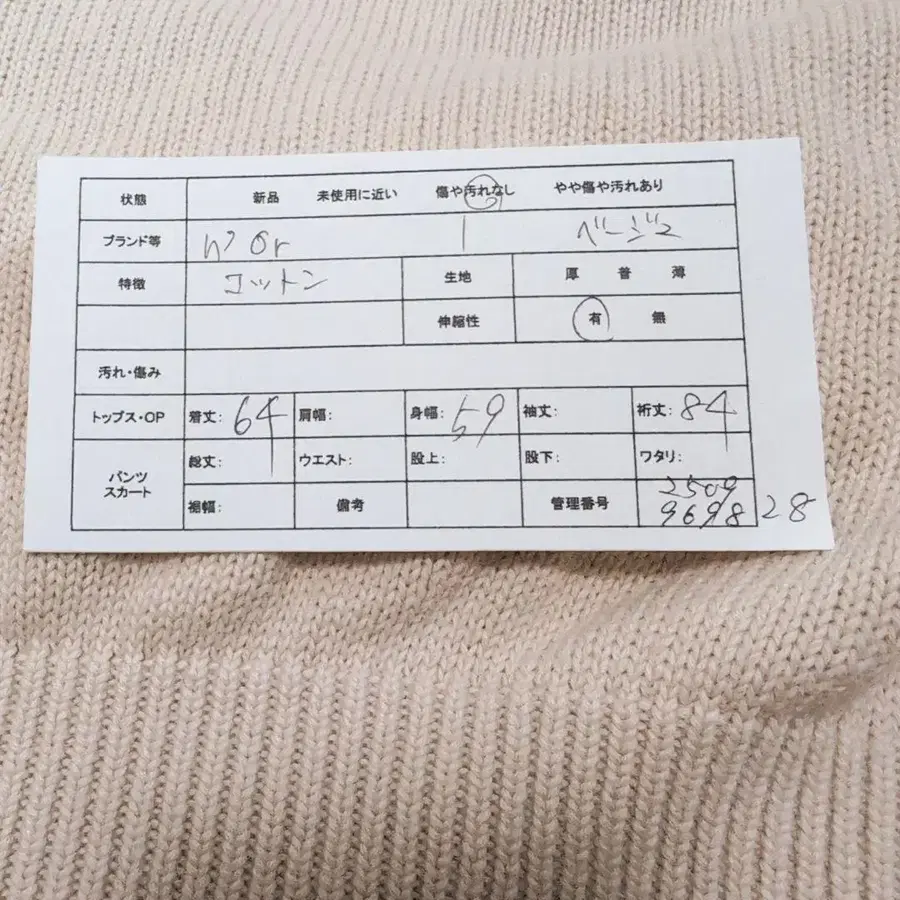 状態 新品 未使用に近い 傷や汚れなし やや傷や汚れあり
ブランド等 n'Or 1 ベージュ
特徴 コットン 生地 厚 普 薄
伸縮性 有 無
汚れ・傷み
トップス・OP 着丈: 64 肩幅: 身幅: 59 袖丈: 裄丈: 84
パンツ スカート 総丈: ウエスト: 股上: 股下: ワタリ:
裾幅: 備考 管理番号 2509
9698 28